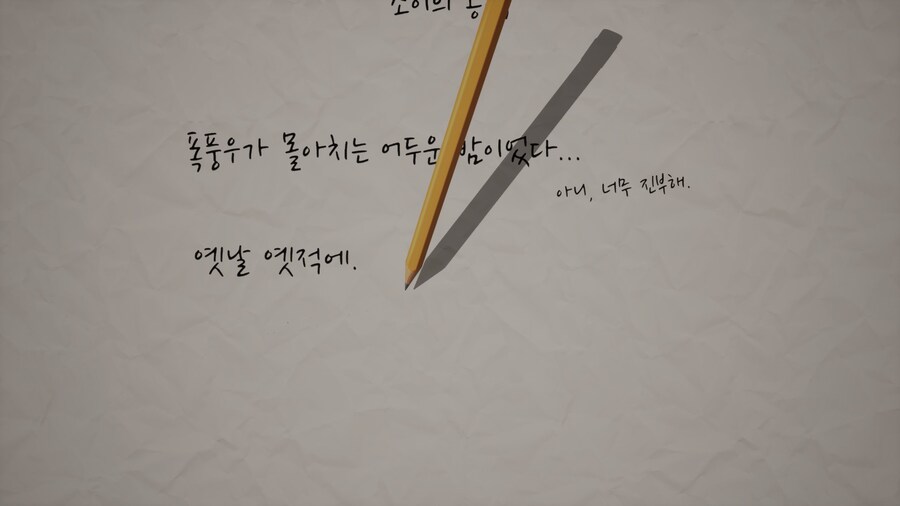 폭풍우가 몰아치는 어두운 밤이었다...
아니, 너무 진부해.
옛날 옛적에.